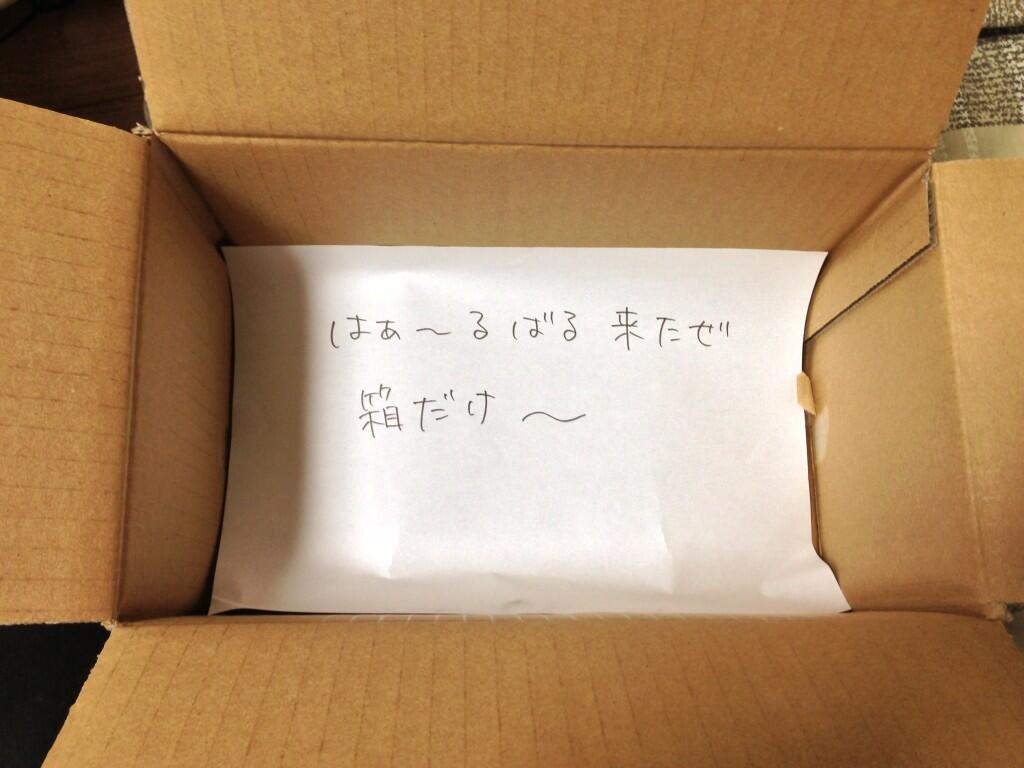 はぁ〜るばる 来たぜ
箱だけ〜